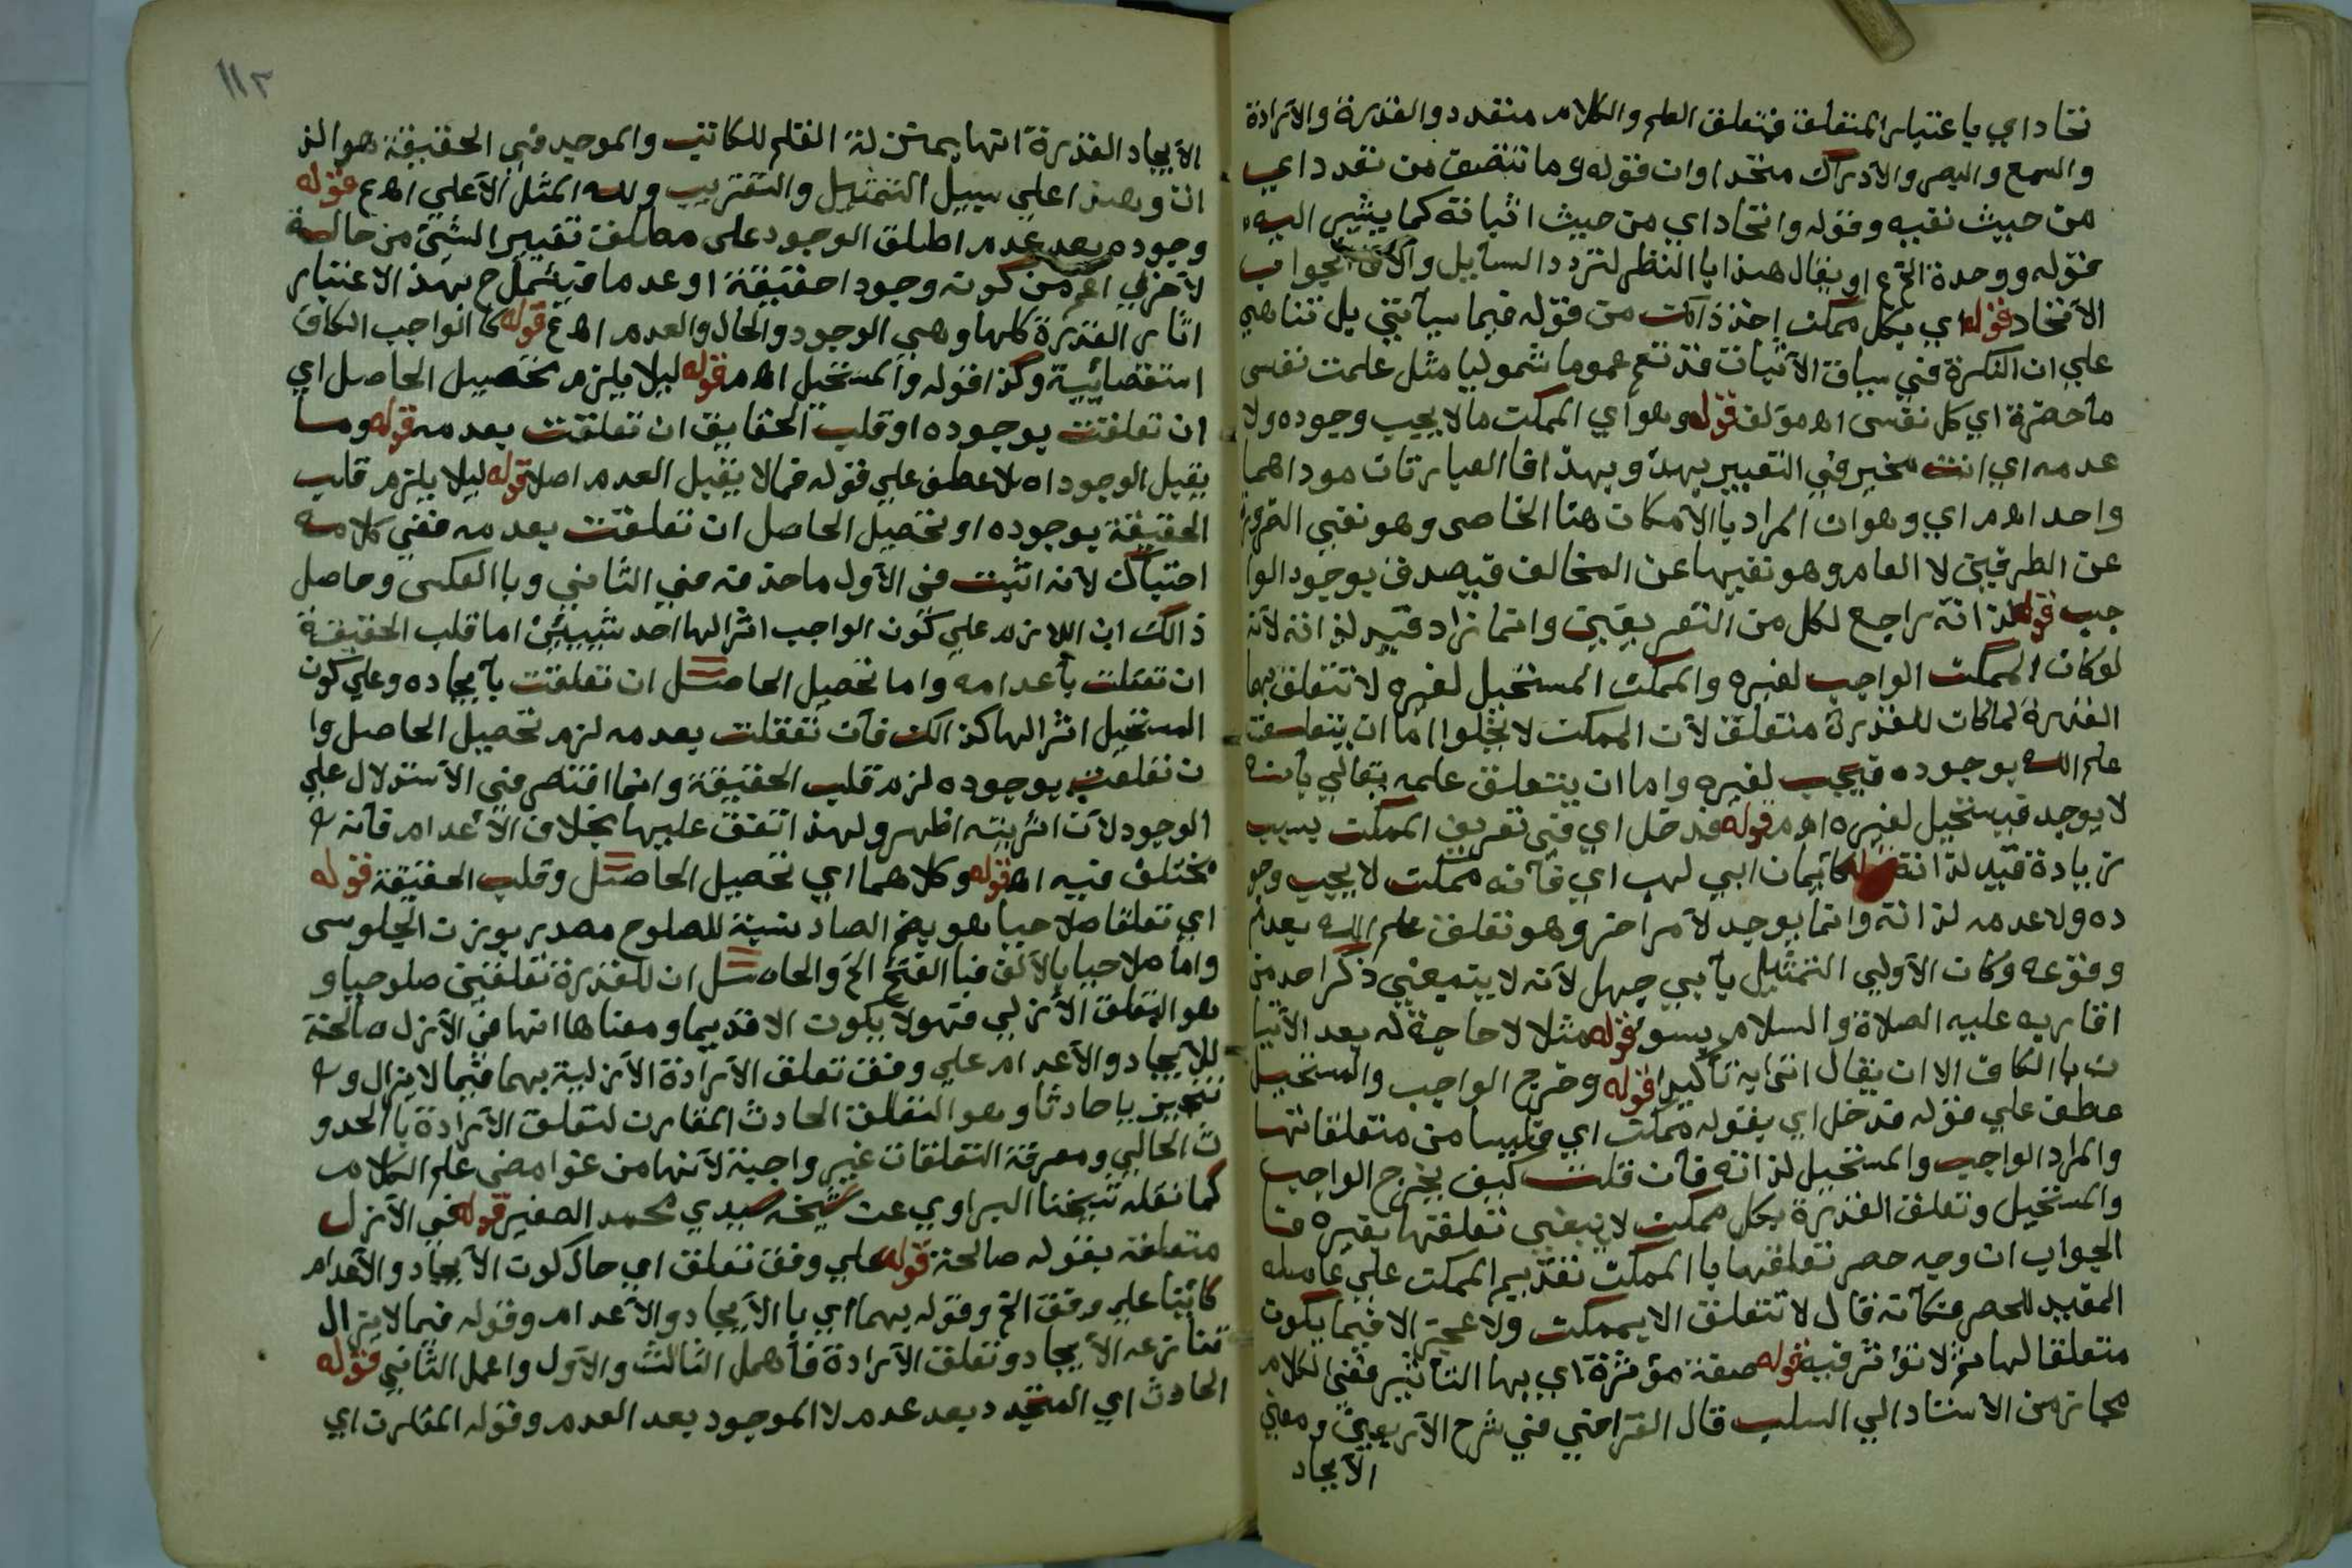 تحاد اي باعتبار المتعلق فتعلق العلم والكلام متعدد والقدرة والارادة
والسمع والبصر والادراك متحد وان قوله وما تتصف من تعدد اي
من حيث نفيه وقوله واتحاد اي من حيث اثباته كما يشير اليه
قوله ووحدة الخ ع او يقال هذا با النظر لتردد السايل والآتي بجواب
الاتحاد قوله اي بكل ممكن اخذ ذالك من قوله فيما سيأتي بل تناهي
علي ان النكرة في سياق الاثبات قد تعم عموما شموليا مثل علمت نفس
ما احضرة اي كل نفس اه مؤلف قوله وهو اي الممكن ما لا يجب وجوده ولا
عدمه اي انت مخير في التعبير بهذ وبهذ افا العبارتان موداهما
واحد اهم اي وهو ان المراد با الامكان هنا الخاص وهو نفي الضرورة
عن الطرفين لا العام وهو نفيها عن المخالف فيصدق بوجود الوا
جب قوله لذاته راجع لكل من التعريفين وانما زاد قيد لذاته لانه
لو كان الممكن الواجب لغيره والممكن المستحيل لغيره لا تتعلق بها
القدرة لما كان للقدرة متعلق لان الممكن لا يخلوا اما ان يتعلق
علم الله بوجوده فيجب لغيره واما ان يتعلق علمه تعالي بانه
لا يوجد فيستحيل لغيره اهم قوله فدخل اي في تعريف الممكن بسبب
زيادة قيد لذاته قوله كايمان ابي لهب اي فانه ممكن لا يجب وجو
ده ولا عدمه لذاته وانما يوجد لامر اخر وهو تعلق علم الله بعدم
وقوعه وكان الاولي التمثيل بابي جهل لانه لا ينبغي ذكر احد من
اقاربه عليه الصلاة والسلام بسو قوله مثلا لا حاجة له بعد الاتيا
ن با الكاف الا ان يقال اتي به تأكيدا قوله وخرج الواجب والمستحيل
عطف علي قوله فدخل اي بقوله ممكن اي فليسا من متعلقاتها
والمراد الواجب والمستحيل لذاته فان قلت كيف يخرج الواجب
والمستحيل وتعلق القدرة بكل ممكن لا ينفي تعلقها بغيره قنا
الجواب ان وجه حصر تعلقها با الممكن تقديم الممكن علي عامله
المفيد للحصر فكأنه قال لا تتعلق الا بممكن ولا عجز الا فيما يكون
متعلقا لها ثم لا تؤثر فيه قوله صفة مؤثرة اي بها التأثير ففي الكلام
مجاز من الاسناد الي السلب قال القرافي في شرح الاربعين ومعني
الايجاد
١١٢
الايجاد القدرة انها بمنزلة القلم للكاتب والموجد في الحقيقة هو الذ
ات وهذا علي سبيل التمثيل والتقريب ولله المثل الاعلي اه ع قوله
وجوده بعد عدم اطلق الوجود علي مطلق تغيير الشئ من حالة
لاخري اعم من كونه وجودا حقيقة او عدما فيشمل ح بهذ الاعتبار
اثار القدرة كلها وهي الوجود والحال والعدم اه ع قوله كا الواجب الكاف
استقصائيية وكذا قوله والمستحيل اهم قوله ليلا يلزم تحصيل الحاصل اي
ان تعلقت بوجوده او قلب الحقايق ان تعلقت بعدمه قوله وما
يقبل الوجود اه لا عطف علي قوله فما لا يقبل العدم اصلا قوله ليلا يلزم قلب
الحقيقة بوجوده او تحصيل الحاصل ان تعلقت بعدمه ففي كلامه
احتباك لانه اثبت في الاول ما حذفه في الثاني وبا العكس وحاصل
ذالك ان اللازم علي كون الواجب اثرا لها احد شيئين اما قلب الحقيقة
ان تعلقت باعدامه واما تحصيل الحاصل ان تعلقت بايجاده وعلي كون
المستحيل اثرا لها كذالك فان تعقلت بعدمه لزم تحصيل الحاصل وا
ن تعلقت بوجوده لزم قلب الحقيقة وانما اقتصر في الاستدلال علي
الوجود لان اثريته اظهر ولهذ اتفق عليها بخلاف الاعدام فانه
مختلف فيه اه قوله وكلاهما اي تحصيل الحاصل وقلب الحقيقة قوله
اي تعلقا صلاحيا هو بضم الصاد نسبة للصلوح مصدر بوزن الجلوس
واما صلاحيا بالالف فبا الفتح الخ والحاصل ان للقدرة تعلقين صلوحيا و
هو التعلق الازلي فهو لا يكون الا قديما ومعناها انها في الازل صالحة
للايجاد والاعدام علي وفق تعلق الارادة الازلية بهما فيما لا يزال و
تنجيزيا حادثا وهو التعلق الحادث المقارن لتعلق الارادة با الحدو
ث الحالي ومعرفة التعلقات غير واجبة لانها من غوامض علم الكلام
كما نقله شيخنا البراوي عن شيخه سيدي محمد الصغير قوله في الازل
متعلقة بقوله صالحة قوله علي وفق تعلق اي حال كون الايجاد والاعدام
كائينا علي وفق الخ وقوله بهما اي با الايجاد والاعدام وقوله فيما لا يزال
تنازعه الايجاد وتعلق الارادة فأهمل الثالث والاول واعمل الثاني قوله
الحادث اي المتجدد بعد عدم لا الموجود بعد العدم وقوله المقارن اي